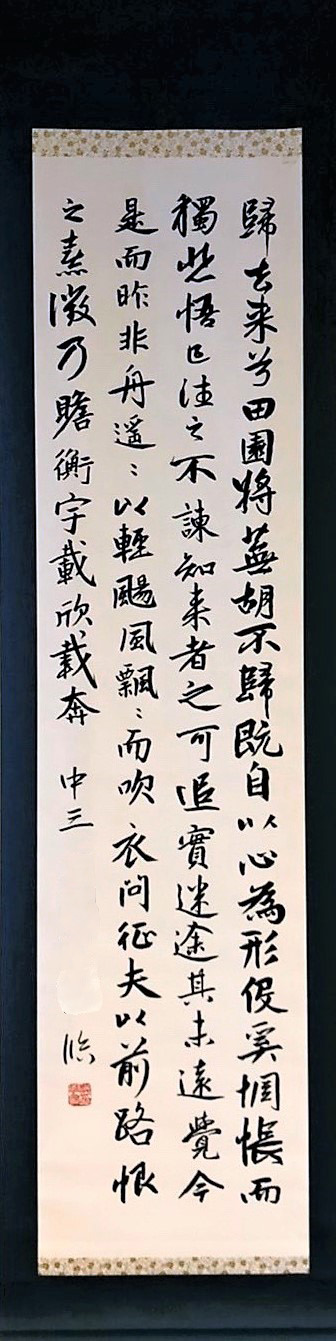 歸去来兮田園将蕪胡不歸既自以心為形役奚惆悵而
獨悲悟已往之不諫知来者之可追實迷途其未遠覺今
是而昨非舟遥〻以輕颺風飄〻而吹衣問征夫以前路恨
之熹微乃瞻衡宇載欣載奔 中三 臨